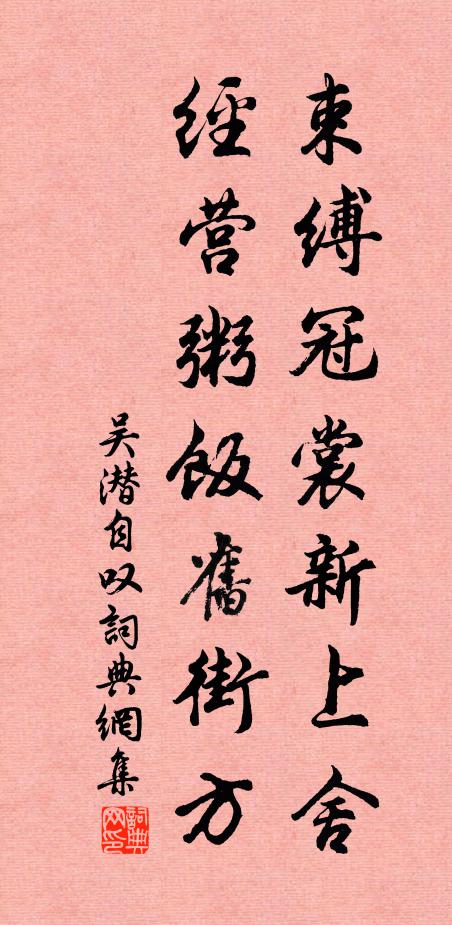 束缚冠裳新上舍
經营粥飯舊街方
吴潜自叹詞典網集
詞典网印